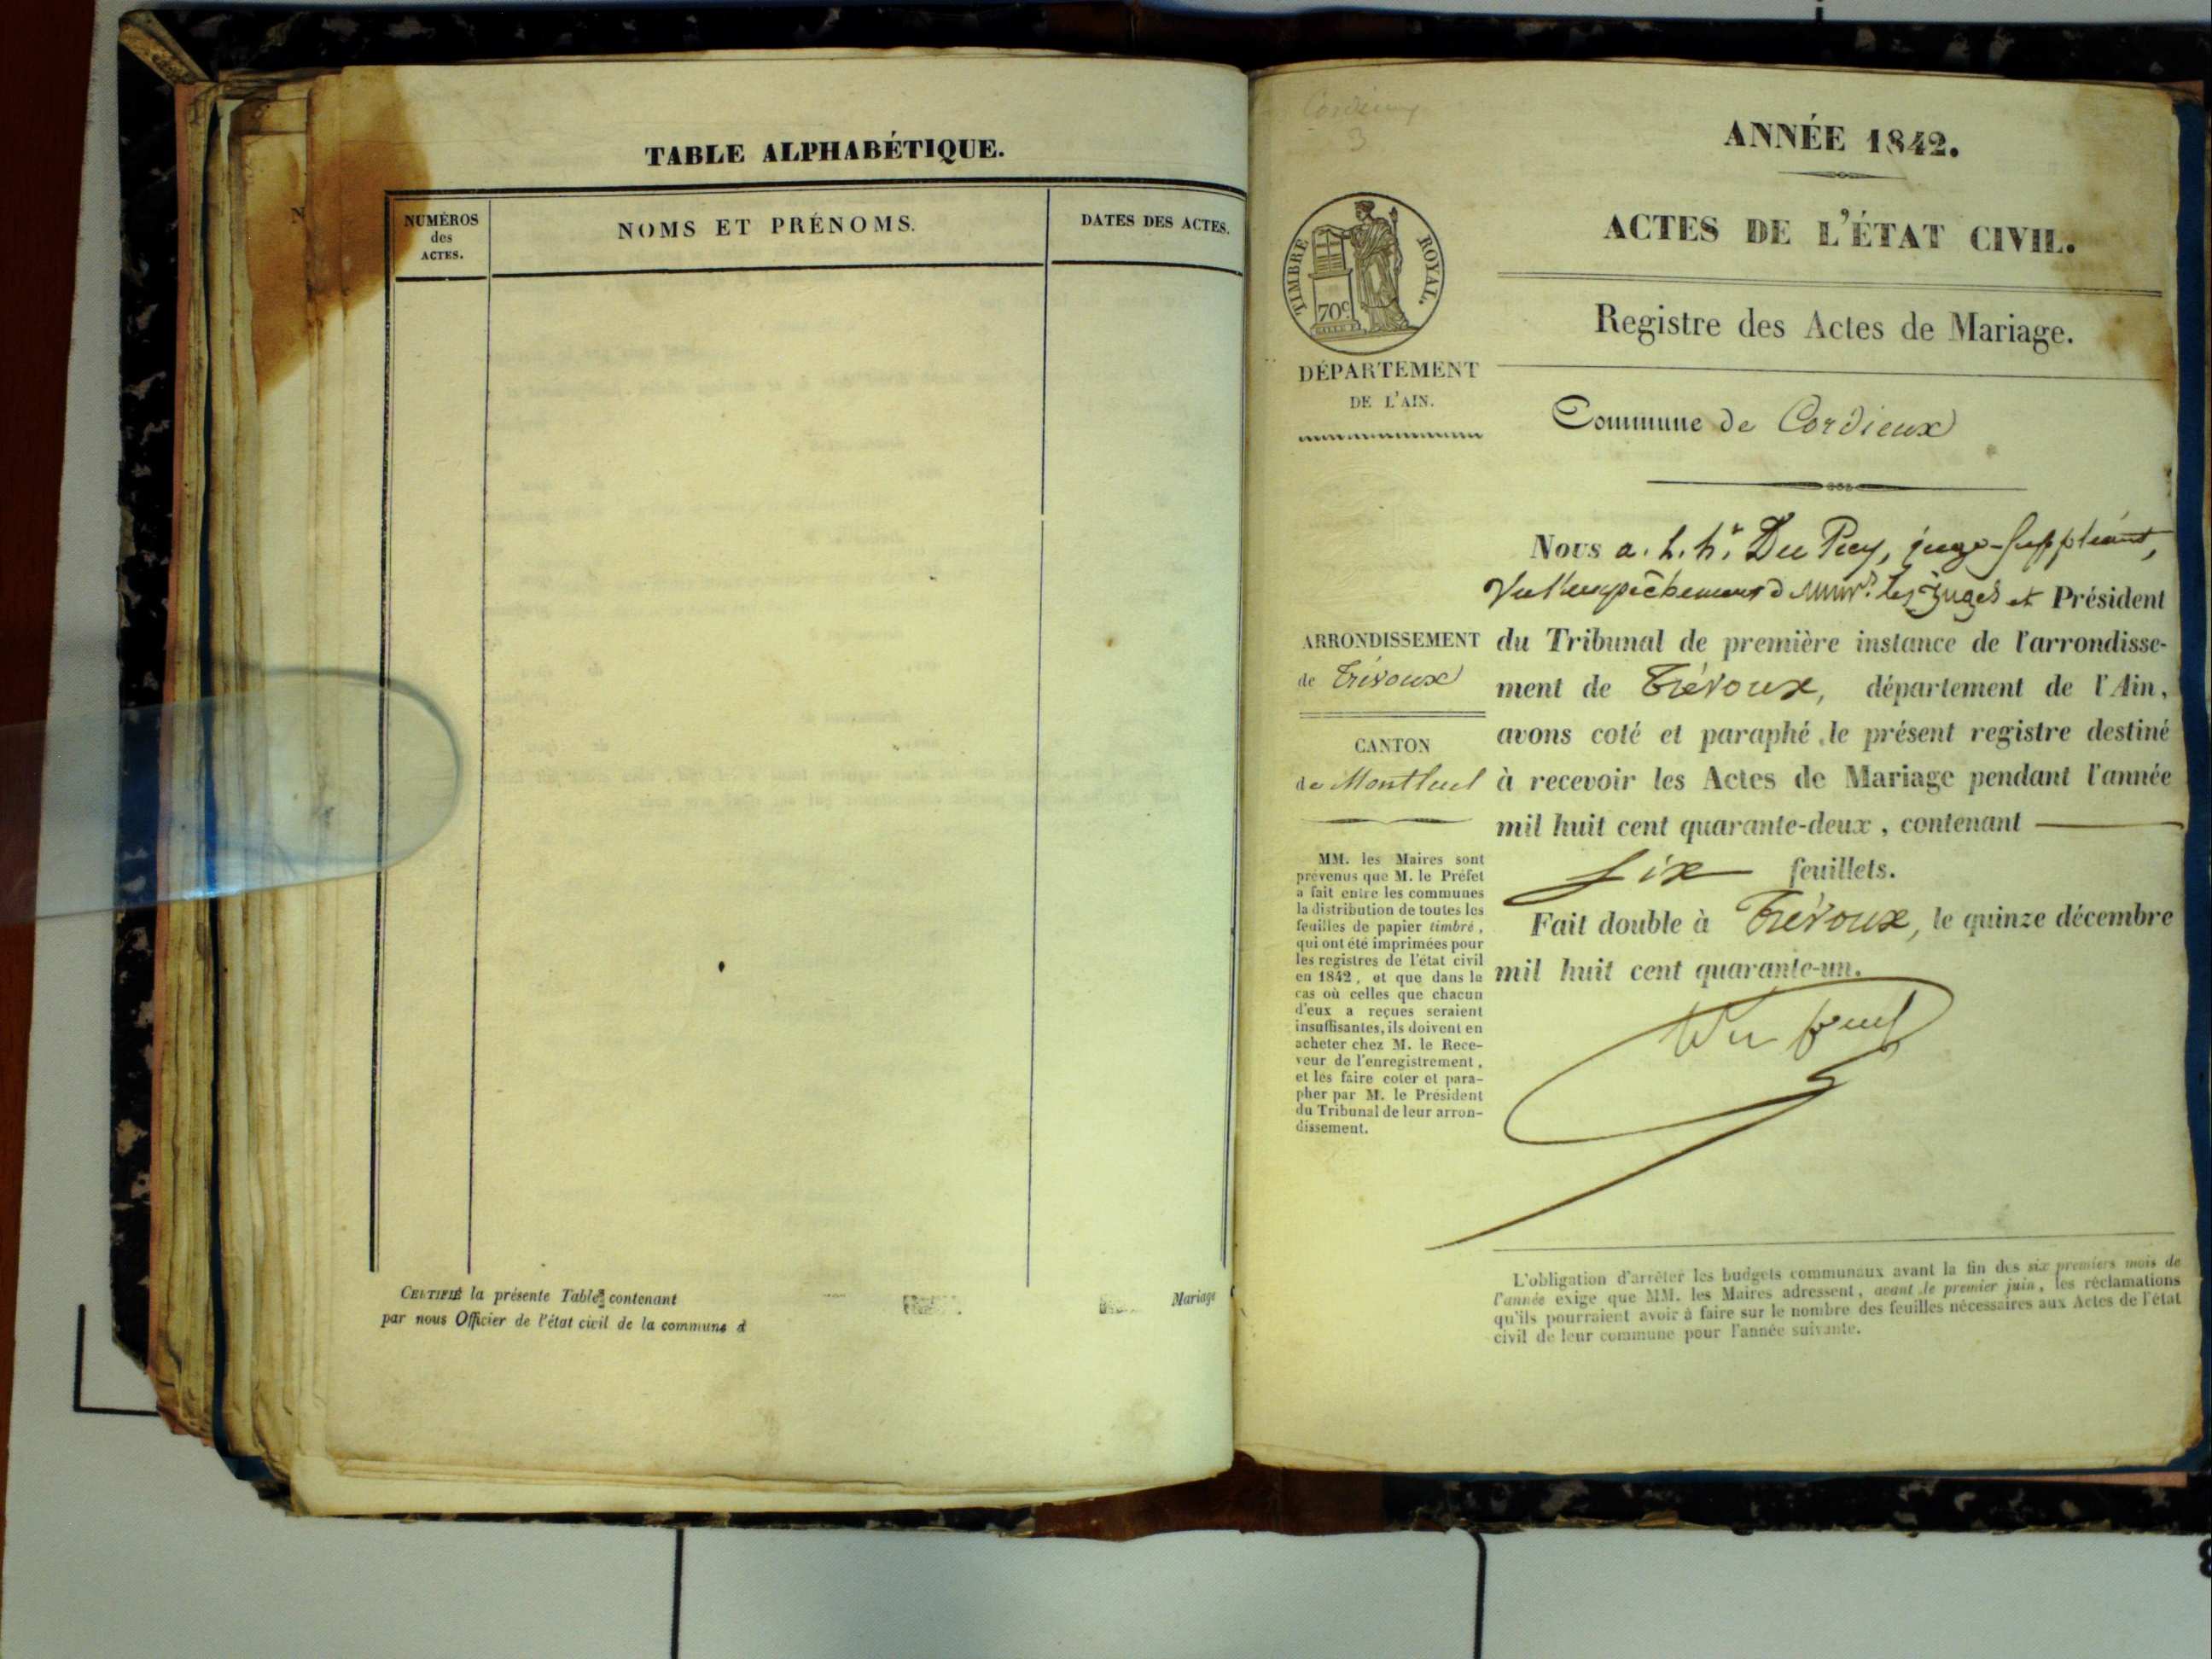 TABLE ALPHABÉTIQUE.
NUMÉROS
des
ACTES.
NOMS ET PRÉNOMS.
DATES DES ACTES.
CERTIFIÉ la présente Table contenant
Mariage
par nous Officier de l'état civil de la commune d
3
ANNÉE 1842.
ACTES DE L'ÉTAT CIVIL.
TIMBRE ROYAL.
70c
Registre des Actes de Mariage.
DÉPARTEMENT
DE L'AIN.
Commune de Cordieux
Nous a. h. hr Du Puy, juge-suppléant,
Vu l'empêchement de MM. les Juges et Président
ARRONDISSEMENT
de Trévoux
CANTON
de Montluel
du Tribunal de première instance de l'arrondisse-
ment de Trévoux, département de l'Ain,
avons coté et paraphé le présent registre destiné
à recevoir les Actes de Mariage pendant l'année
mil huit cent quarante-deux, contenant
six feuillets.
Fait double à Trévoux, le quinze décembre
mil huit cent quarante-un.
MM. les Maires sont
prévenus que M. le Préfet
a fait entre les communes
la distribution de toutes les
feuilles de papier timbré,
qui ont été imprimées pour
les registres de l'état civil
en 1842, et que dans le
cas où celles que chacun
d'eux a reçues seraient
insuffisantes, ils doivent en
acheter chez M. le Rece-
veur de l'enregistrement,
et les faire coter et para-
pher par M. le Président
du Tribunal de leur arron-
dissement.
L'obligation d'arrêter les budgets communaux avant la fin des six premiers mois de
l'année exige que MM. les Maires adressent, avant le premier juin, les réclamations
qu'ils pourraient avoir à faire sur le nombre des feuilles nécessaires aux Actes de l'état
civil de leur commune pour l'année suivante.